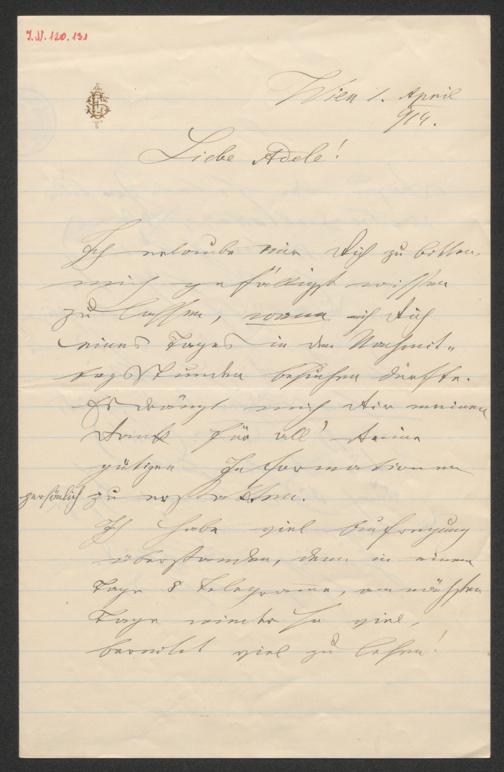 I.N. 120.131
Wien 1. April
914.
Liebe Adele!
Ich erlaube mir Dich zu bitten,
mich gefälligst wissen
zu lassen, wann ich Dich
eines Tages in den Nachmit-
tagsstunden besuchen dürfte.
Es drängt mich Dir meinen
Dank für all' Deine
gütigen Informationen
persönlich zu erstatten.
Ich habe viel Aufregung
überstanden, denn in einem
Tage 8 Telegramme, am nächsten
Tage wieder so viel,
bereitet viel zu